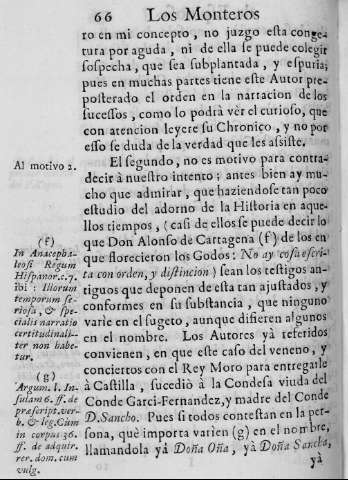 66 Los Monteros
ro en mi concepto, no juzgo esta conge-
tura por aguda, ni de ella se puede colegir
sospecha, que sea subplantada, y espuria;
pues en muchas partes tiene este Autor pre-
posterado el orden en la narracion de los
sucessos, como lo podrà vèr el curioso, que
con atencion leyere su Chronico, y no por
esso se duda de la verdad que les assiste.
Al motivo 2.
El segundo, no es motivo para contra-
decir à nuestro intento; antes bien ay mu-
cho que admirar, que haziendose tan poco
estudio del adorno de la Historia en aque-
llos tiempos, (casi de ellos se puede decir lo
que Don Alonso de Cartagena (f) de los en
que florecieron los Godos: No ay cosa escri-
ta con orden, y distincion) sean los testigos an-
tiguos que deponen de esta tan ajustados, y
conformes en su substancia, que ninguno
varie en el sugeto, aunque difieren algunos
en el nombre. Los Autores yà referidos
convienen, en que este caso del veneno, y
conciertos con el Rey Moro para entregarle
à Castilla, sucediò à la Condesa viuda del
Conde Garci-Fernandez, y madre del Conde
D. Sancho. Pues si todos contestan en la per-
sona, què importa varien (g) en el nombre,
llamandola yà Doña Oña, yà Doña Sancha,
yà
(f)
In Anacepha-
leosi Regum
Hispanor. c. 7.
ibi: Illorum
temporum se-
riosa, & spe-
cialis narratio
certitudinali-
ter non habe-
tur.
(g)
Argum. l. In-
sulam 6. ff. de
præscript. ver-
b. & leg. Cum
in corpus 36.
ff. de adquir.
rer. dom. cum
vulg.